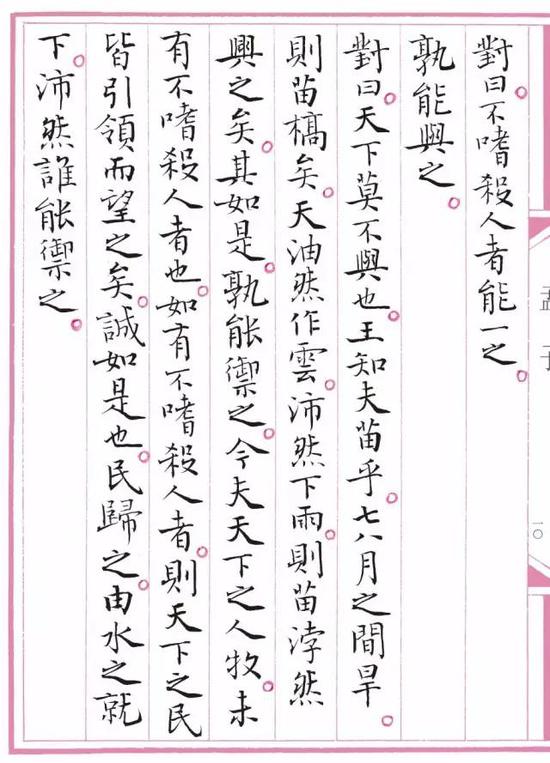 孟子
一〇
對曰。不嗜殺人者能一之。
孰能與之。
對曰。天下莫不與也。王知夫苗乎。七八月之間旱。
則苗槁矣。天油然作雲。沛然下雨。則苗浡然
興之矣。其如是。孰能禦之。今夫天下之人牧。未
有不嗜殺人者也。如有不嗜殺人者。則天下之民
皆引領而望之矣。誠如是也。民歸之。由水之就
下。沛然誰能禦之。